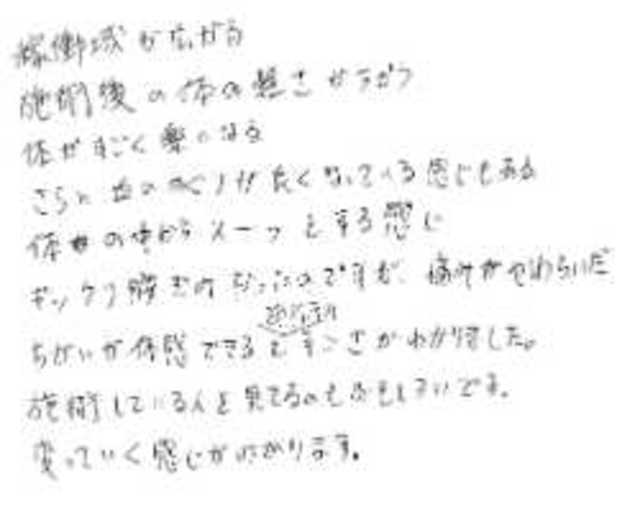 稼働域が広がる
施術後の体の軽さがちがう
体がすごく楽になる
さらに血のめぐりが良くなっている感じもある
体の中からスーッとする感じ
ギックリ腰になったのですが、痛みがやわらいだ
ちがいが体感できるとすごさがわかりました。
施術している人を見てるのもおもしろいです。
変っていく感じがわかります。